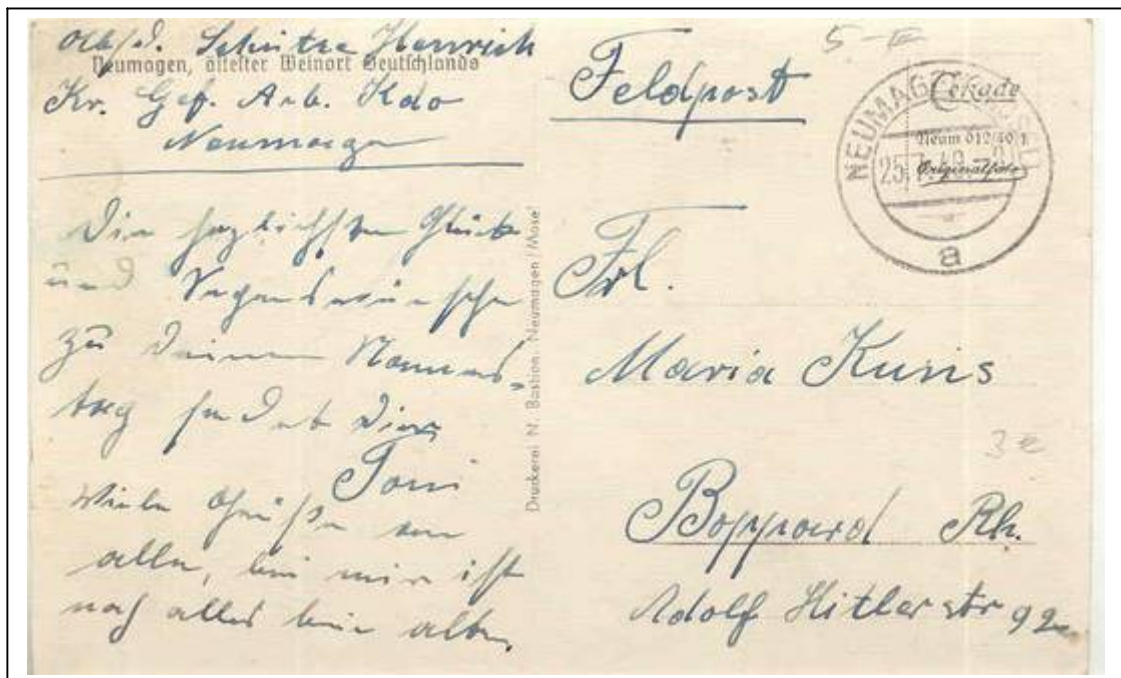 Abs/d. Schütze Henrich
Neumagen, ältester Weinort Deutschlands
Kr. Gef. Arb. Kdo
Neumagen
Die herzlichsten Glück-
und Segenswünsche
zu Deinem Namens-
tag sendet Dir
Toni
Viele Grüße an
alle, bei mir ist
noch alles beim alten.
Druckerei N. Bastion, Neumagen/Mosel
Feldpost
5-
NEUMAGEN
25.7.40
a
Cekade
Neum 012/40 1
Originalfoto
Frl.
Maria Kunis
3
Boppard Rh.
Adolf Hitler str 92